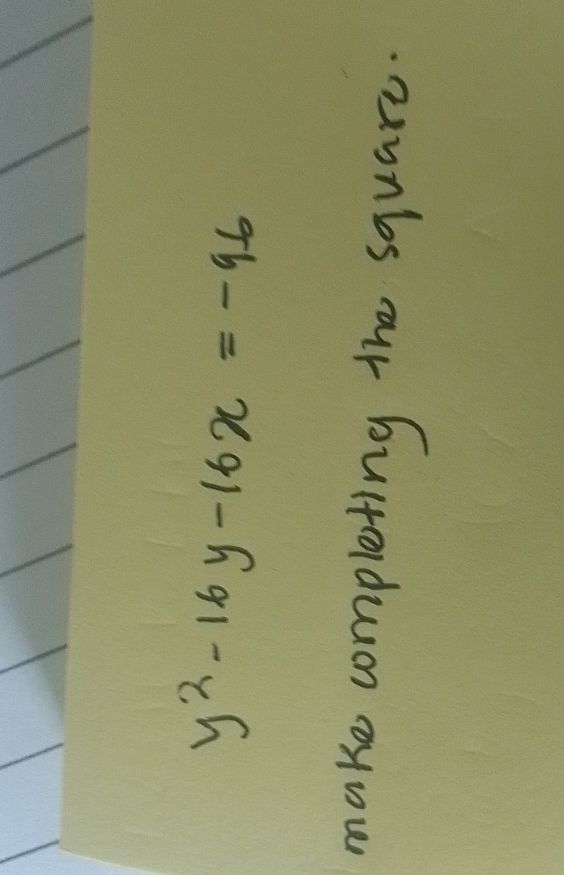 y² - 16y - 16x = - 96
make completing the square.